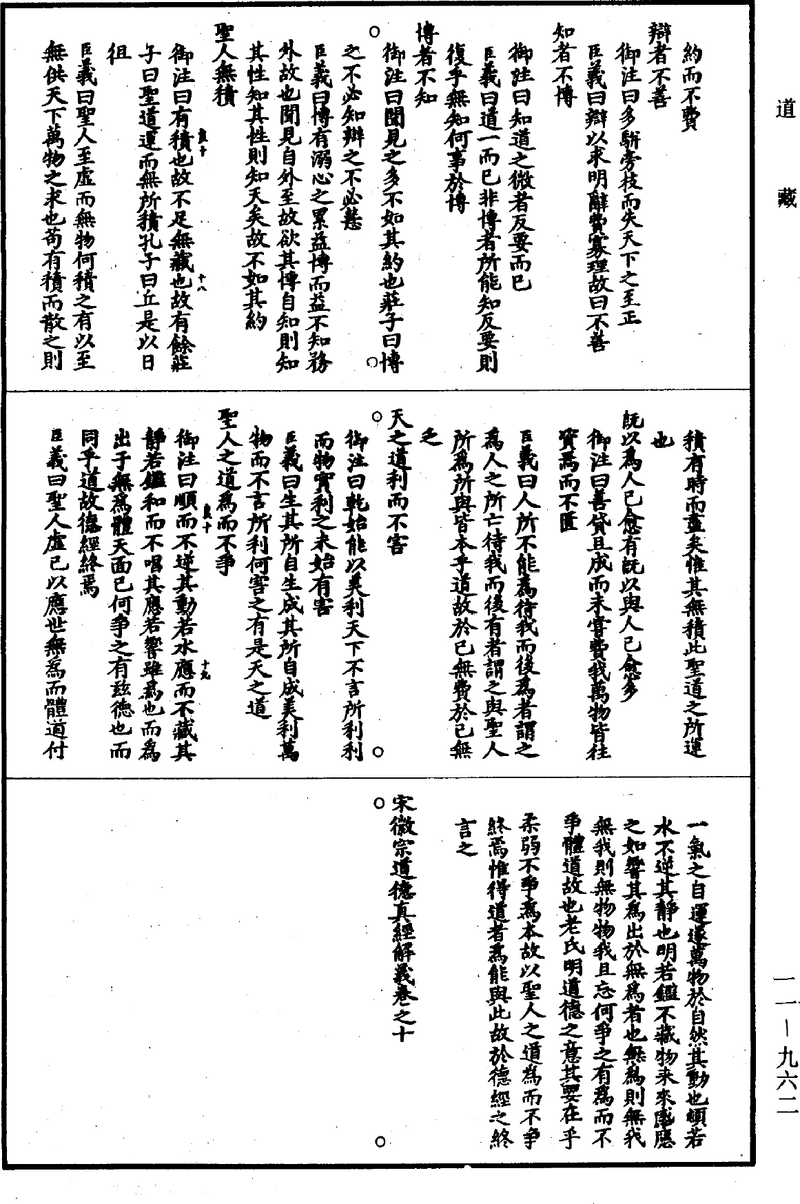 道藏
約而不費
辯者不善
御注曰多駢旁枝而失天下之至正
臣義曰辯以求明辭費寡理故曰不善
知者不博
御註曰知道之微者反要而已
臣義曰道一而已非博者所能知反要則
復乎無知何事於博
博者不知
御注曰聞見之多不如其約也莊子曰博
之不必知辯之不必慧
臣義曰博有溺心之累益博而益不知務
外故也聞見自外至故欲其博自知則知
其性知其性則知天矣故不如其約
聖人無積
御注曰有積也故不足無藏也故有餘莊
子曰聖道運而無所積孔子曰丘是以日
徂
臣義曰聖人至虛而無物何積之有以至
無供天下萬物之求也苟有積而散之則
良十
十八
積有時而盡矣惟其無積此聖道之所運
也
既以為人己愈有既以與人己愈多
御注曰善貸且成而未嘗費我萬物皆往
資焉而不匱
臣義曰人所不能為待我而後為者謂之
為人之所亡待我而後有者謂之與聖人
所為所與皆本乎道故於己無費於己無
乏
天之道利而不害
御注曰乾始能以美利天下不言所利利
而物實利之未始有害
臣義曰生其所自生成其所自成美利萬
物而不言所利何害之有是天之道
聖人之道為而不爭
御注曰順而不逆其動若水應而不藏其
靜若鑑和而不唱其應若響雖為也而為
出于無為體天而已何爭之有茲德也而
同乎道故德經終焉
臣義曰聖人虛己以應世無為而體道付
良十
十九
一氣之自運遂萬物於自然其動也順若
水不逆其靜也明若鑑不藏物來來感應
之如響其為出於無為者也無為則無我
無我則無物物我且忘何爭之有為而不
爭體道故也老氏明道德之意其要在乎
柔弱不爭為本故以聖人之道為而不爭
終焉惟得道者為能與此故於德經之終
言之
宋徽宗道德真經解義卷之十
一一—九六二